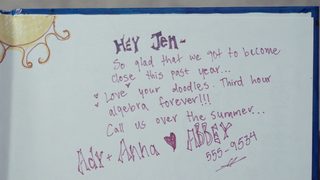 HEY Jen-
So glad that we got to become
close this past year...
Love your doodles. Third hour
algebra forever!!!
Call us over the summer...
Ady + Anna ♥ ABBEY
555-9534